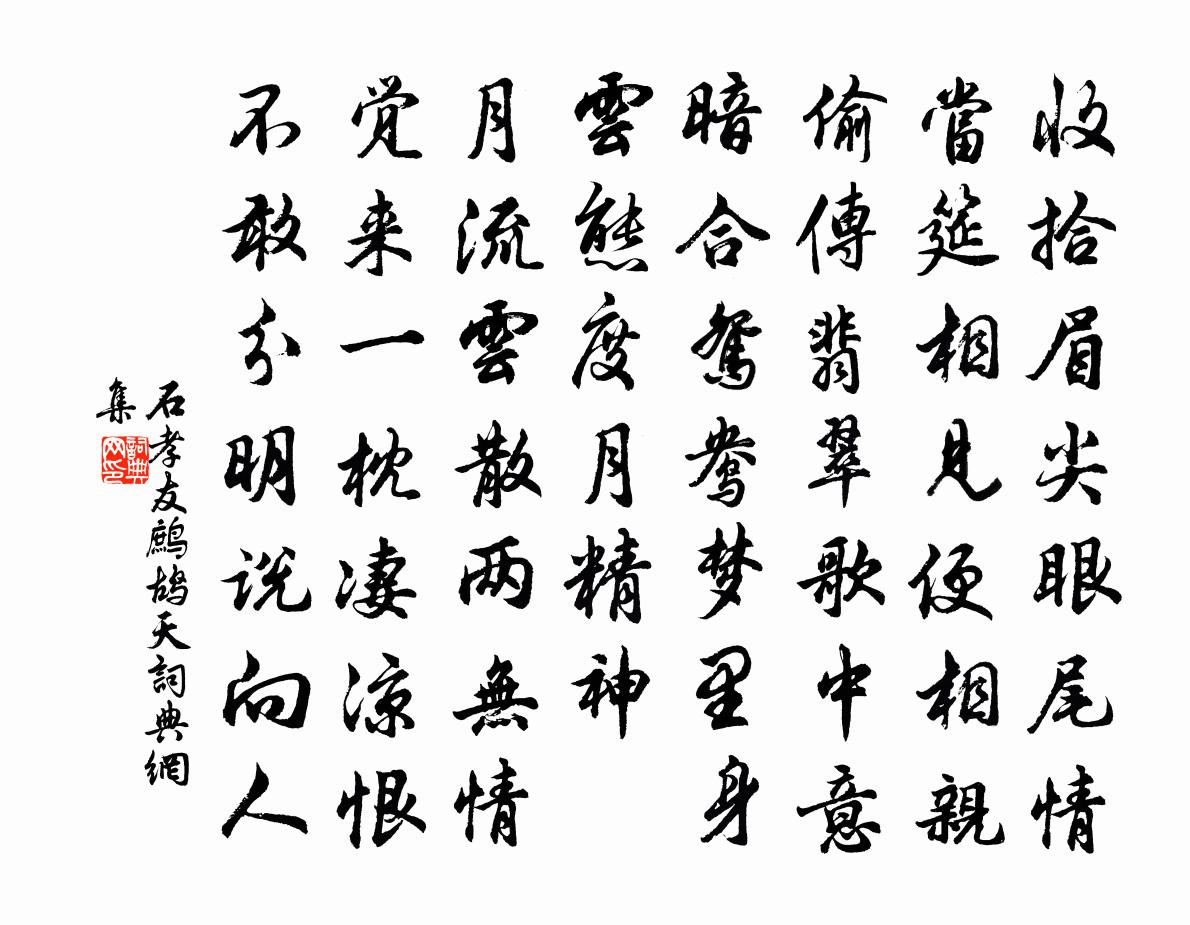 收拾眉尖眼尾情
當筵相見便相親
偷傳翡翠歌中意
暗合鴛鴦梦里身
雲態度月精神
月流雲散两無情
觉来一枕凄涼恨
不敢分明说向人
石孝友鷓鴣天詞典網
集
詞典
网印